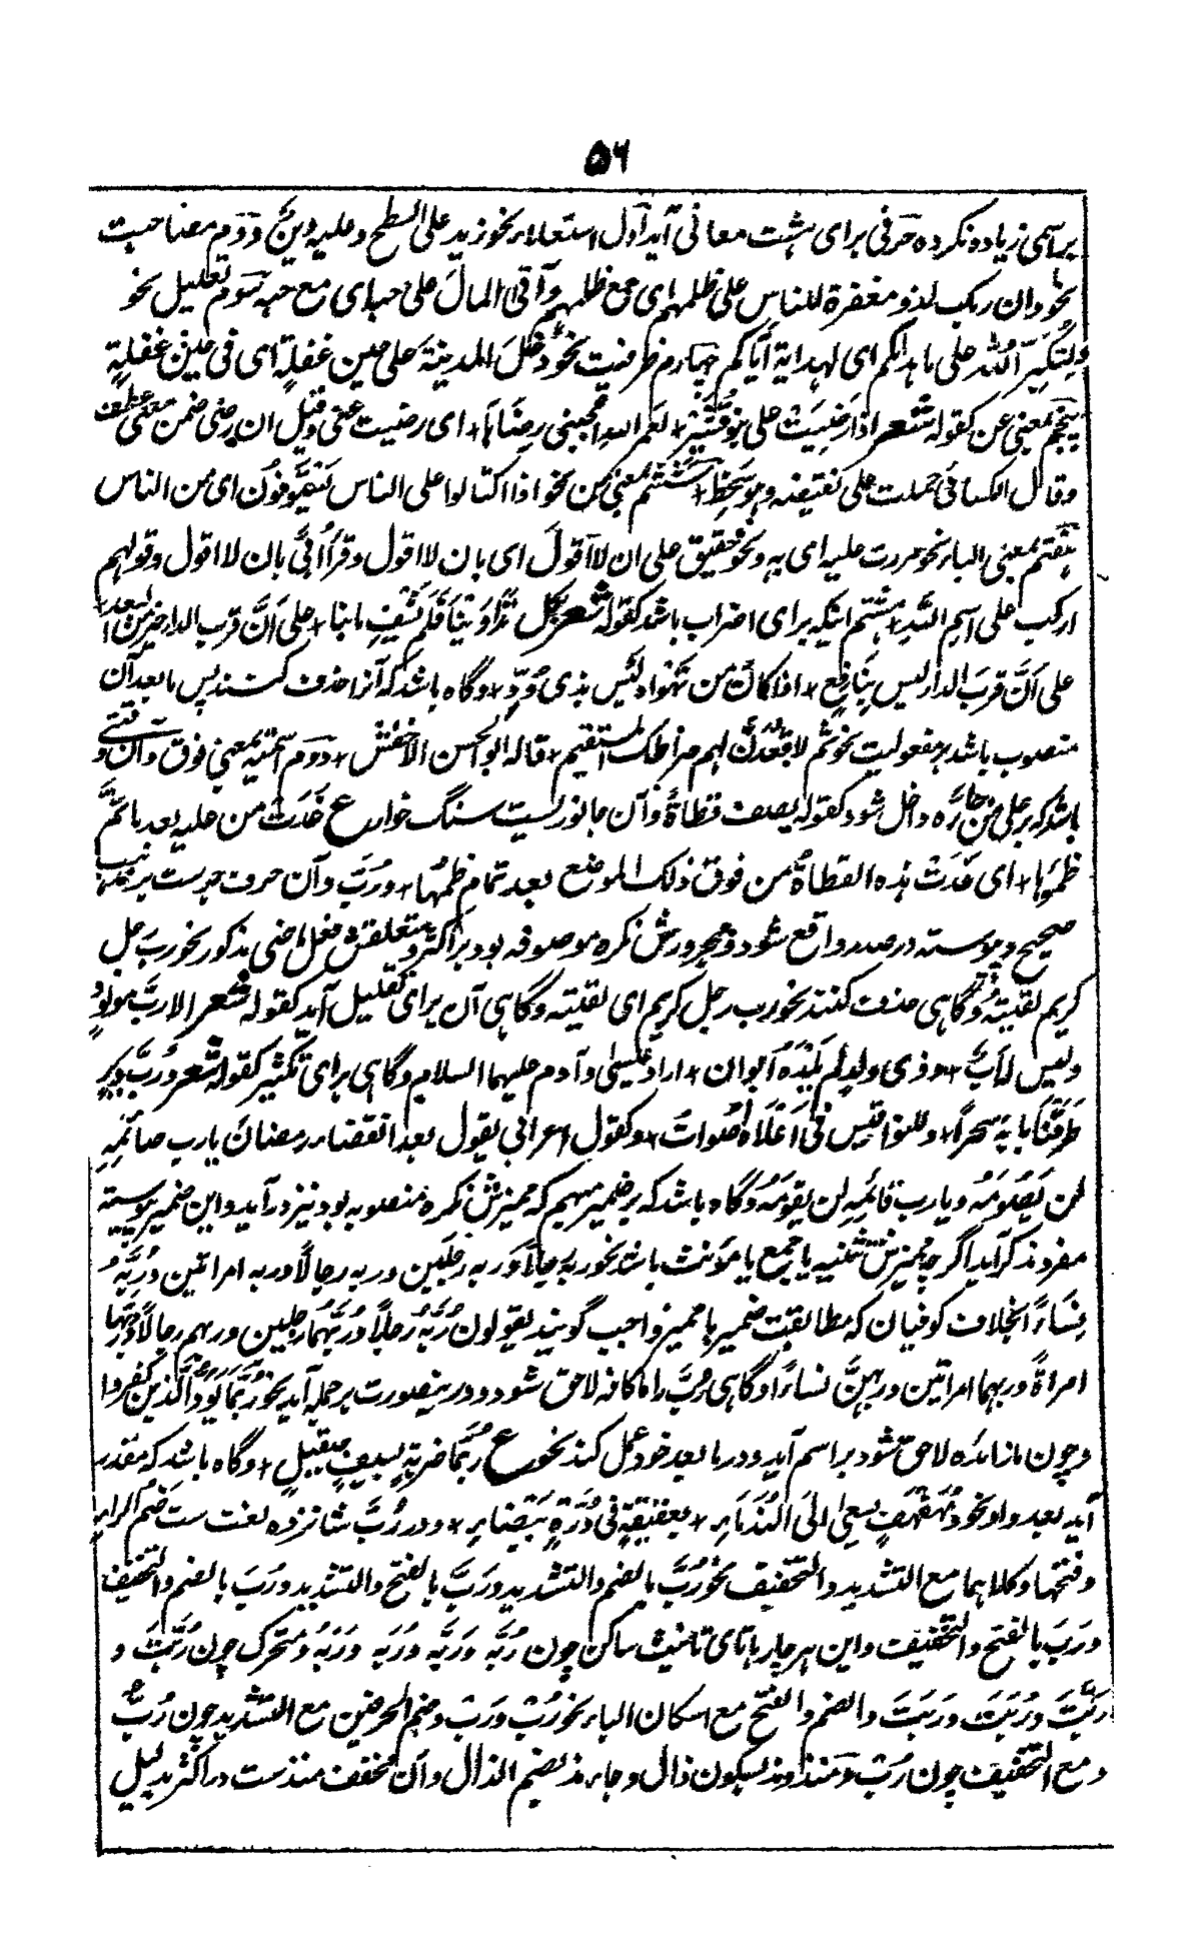 ۵۶
براسمی زیاده نکرده حرفی برای هشت معانی آید اول استعلاء نحو زید علی السطح و علیه دین و دوم مصاحبت
نحو وان ربک لذو مغفرة للناس علی ظلمهم ای مع ظلمهم و آتی المال علی حبه ای مع حبه سوم تعلیل نحو
ولتکبروا الله علی ما هداکم ای لهدایة ایاکم چهارم ظرفیت نحو دخل المدینة علی حین غفلة ای فی حین غفلة
پنجم بمعنی عن کقوله شعر اذا رضیت علی بنو قشیر * لعمر الله اعجبنی رضاها * ای رضیت عنی و قیل ان رضی ضمن معنی عطف
وقال الکسائی حملت علی نقیضه و هو سخط * ششم بمعنی من نحو اذا اکتالوا علی الناس یستوفون ای من الناس
هفتم بمعنی الباء نحو مررت علیه ای به و نحو حقیق علی ان لا اقول ای بان لا اقول و قرأ ابی بان لا اقول و قولهم
ارکب علی اسم الله * هشتم اینکه برای اضراب باشد کقوله شعر بکل تداوینا فلم یشف ما بنا * علی ان قرب الدار خیر من البعد *
علی ان قرب الدار لیس بنافع * اذا کان من تهواه لیس بذی ود * و گاه باشد که آنرا حذف کنند پس ما بعد آن
منصوب باشد بر مفعولیت نحو ثم لاقعدن لهم صراطک المستقیم * قاله ابو الحسن الاخفش * دوم اسمیه بمعنی فوق و آن وقتی
باشد که بر علی من جاره داخل شود کقوله یصف قطاة و آن جانوریست سنگ خوار ع غدت من علیه بعد ما تم
ظمؤها * ای غدت هذه القطاة من فوق ذلک الموضع بعد تمام ظمئها * و رُبَّ و آن حرف جرست بر مذهب
صحیح و پیوسته در صدر واقع شود و مجرورش نکره موصوفه بود بر اکثر و متعلقش فعل ماضی مذکور نحو رب رجل
کریم لقیته و گاهی حذف کنند نحو رب رجل کریم ای لقیته و گاهی آن برای تقلیل آید کقوله شعر الا رب مولود
ولیس له اب * و ذی ولد لم یلده ابوان * اراد عیسی و آدم علیهما السلام و گاهی برای تکثیر کقوله شعر و رب دیر
طرقنا بابه سحرا * و للنواقیس فی اعلاه اصوات * و کقول اعرابی یقول بعد انقضاء رمضان یا رب صائمه
لن یصومه و یا رب قائمه لن یقومه و گاه باشد که بر ضمیر مبهم که ممیزش نکره منصوبه بود نیز در آید و این ضمیر پیوسته
مفرد مذکر آید اگر چه ممیزش تثنیه یا جمع یا مؤنث باشد نحو ربه رجلا و ربه رجلین و ربه رجالا و ربه امراتین و ربه
نساء بخلاف کوفیان که مطابقت ضمیر با ممیز واجب گویند یقولون ربه رجلا و ربهما رجلین و ربهم رجالا و ربها
امراة و ربهما امراتین و ربهن نساء و گاهی رب را ما کافه لاحق شود و درینصورت بر جمله آید نحو ربما یود الذین کفروا
و چون ما زائده لاحق شود بر اسم آید و در ما بعد خود عمل کند نحو ع ربما ضربة بسیف صقیل * و گاه باشد که مقدر
آید بعد واو نحو سعی الی * فی درة بیضاء * و در رب شانزده لغت ست ضم الراء
و فتحها و کلاهما مع التشدید و التخفیف نحو رُبَّ بالضم و التشدید و رَبَّ بالفتح و التشدید و رُبَ بالضم و التخفیف
و رَبَ بالفتح و التخفیف و این هر چار با تای تانیث ساکن چون رُبَّه و رَبَّه و رُبَه و رَبَه و متحرک چون رُبَّتَ و
رَبَّتَ و رُبَتَ و رَبَتَ و الضم و الفتح مع اسکان الباء نحو رُبْ و رَبْ و ضم الحرفین مع التشدید چون رُبُّ
و مع التخفیف چون رُبُ و منذ و مذ بسکون ذال و جاء مذ بضم الذال و آن مخفف منذ ست در اکثر بدلیل